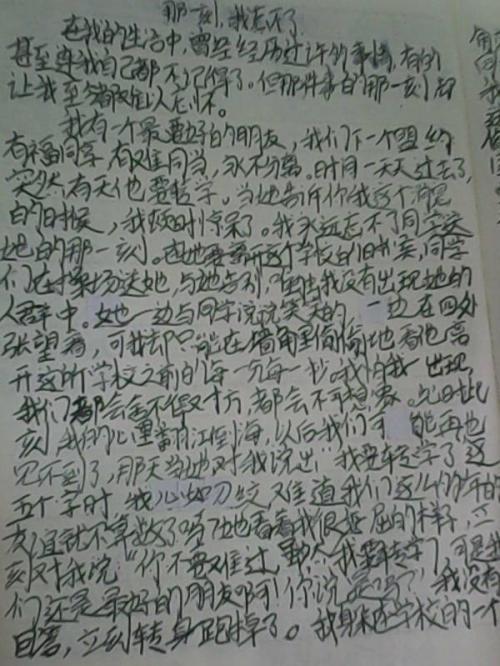 那一刻，我忘不了
在我的生活中，曾经经历过许多事情，有的
甚至连我自己都不记得了。但那件事的那一刻却
让我至今都难以忘怀。
我有一个最要好的朋友，我们下一个盟约
有福同享有难同当，永不分离。时间一天天过去了，
突然有天他要转学。当她告诉你我这个消息
的时候，我顿时惊呆了。我永远忘不了同学送
她的那一刻。在她要离开这个学校的时候，同学
们在操场送她，与她告别，唯独我没有出现她的
人群中。她一边与同学说说笑笑的，一边在四处
张望着，可我却只能在墙角里偷偷地看他离
开这所学校之前的每一分每一秒。我怕我出现，
我们都会舍不得对方，都会不可想象。见此
刻，我的心里翻江倒海，以后我们可能再也
见不到了，那天当她对我说出“我要转学了”这
五个字时，我心如刀绞，难道我们这么多年的
友谊就不算数了吗？她看着我很委屈的样子，立
刻对我说“你不要难过，虽然我要转学了，可是我
们还是最好的朋友啊！你说是吗？”我没有
回答，立刻转身跑掉了。我躲在学校的一个